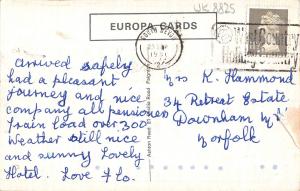 UK 8825
EUROPA CARDS
Arrived safely
had a pleasant
Journey and nice
company all pensioners
Train load over 300
Weather still nice
and sunny Lovely
Hotel. Love Flo.
Mrs K. Hammond
34 Retreat Estate
Downham Mkt
Norfolk